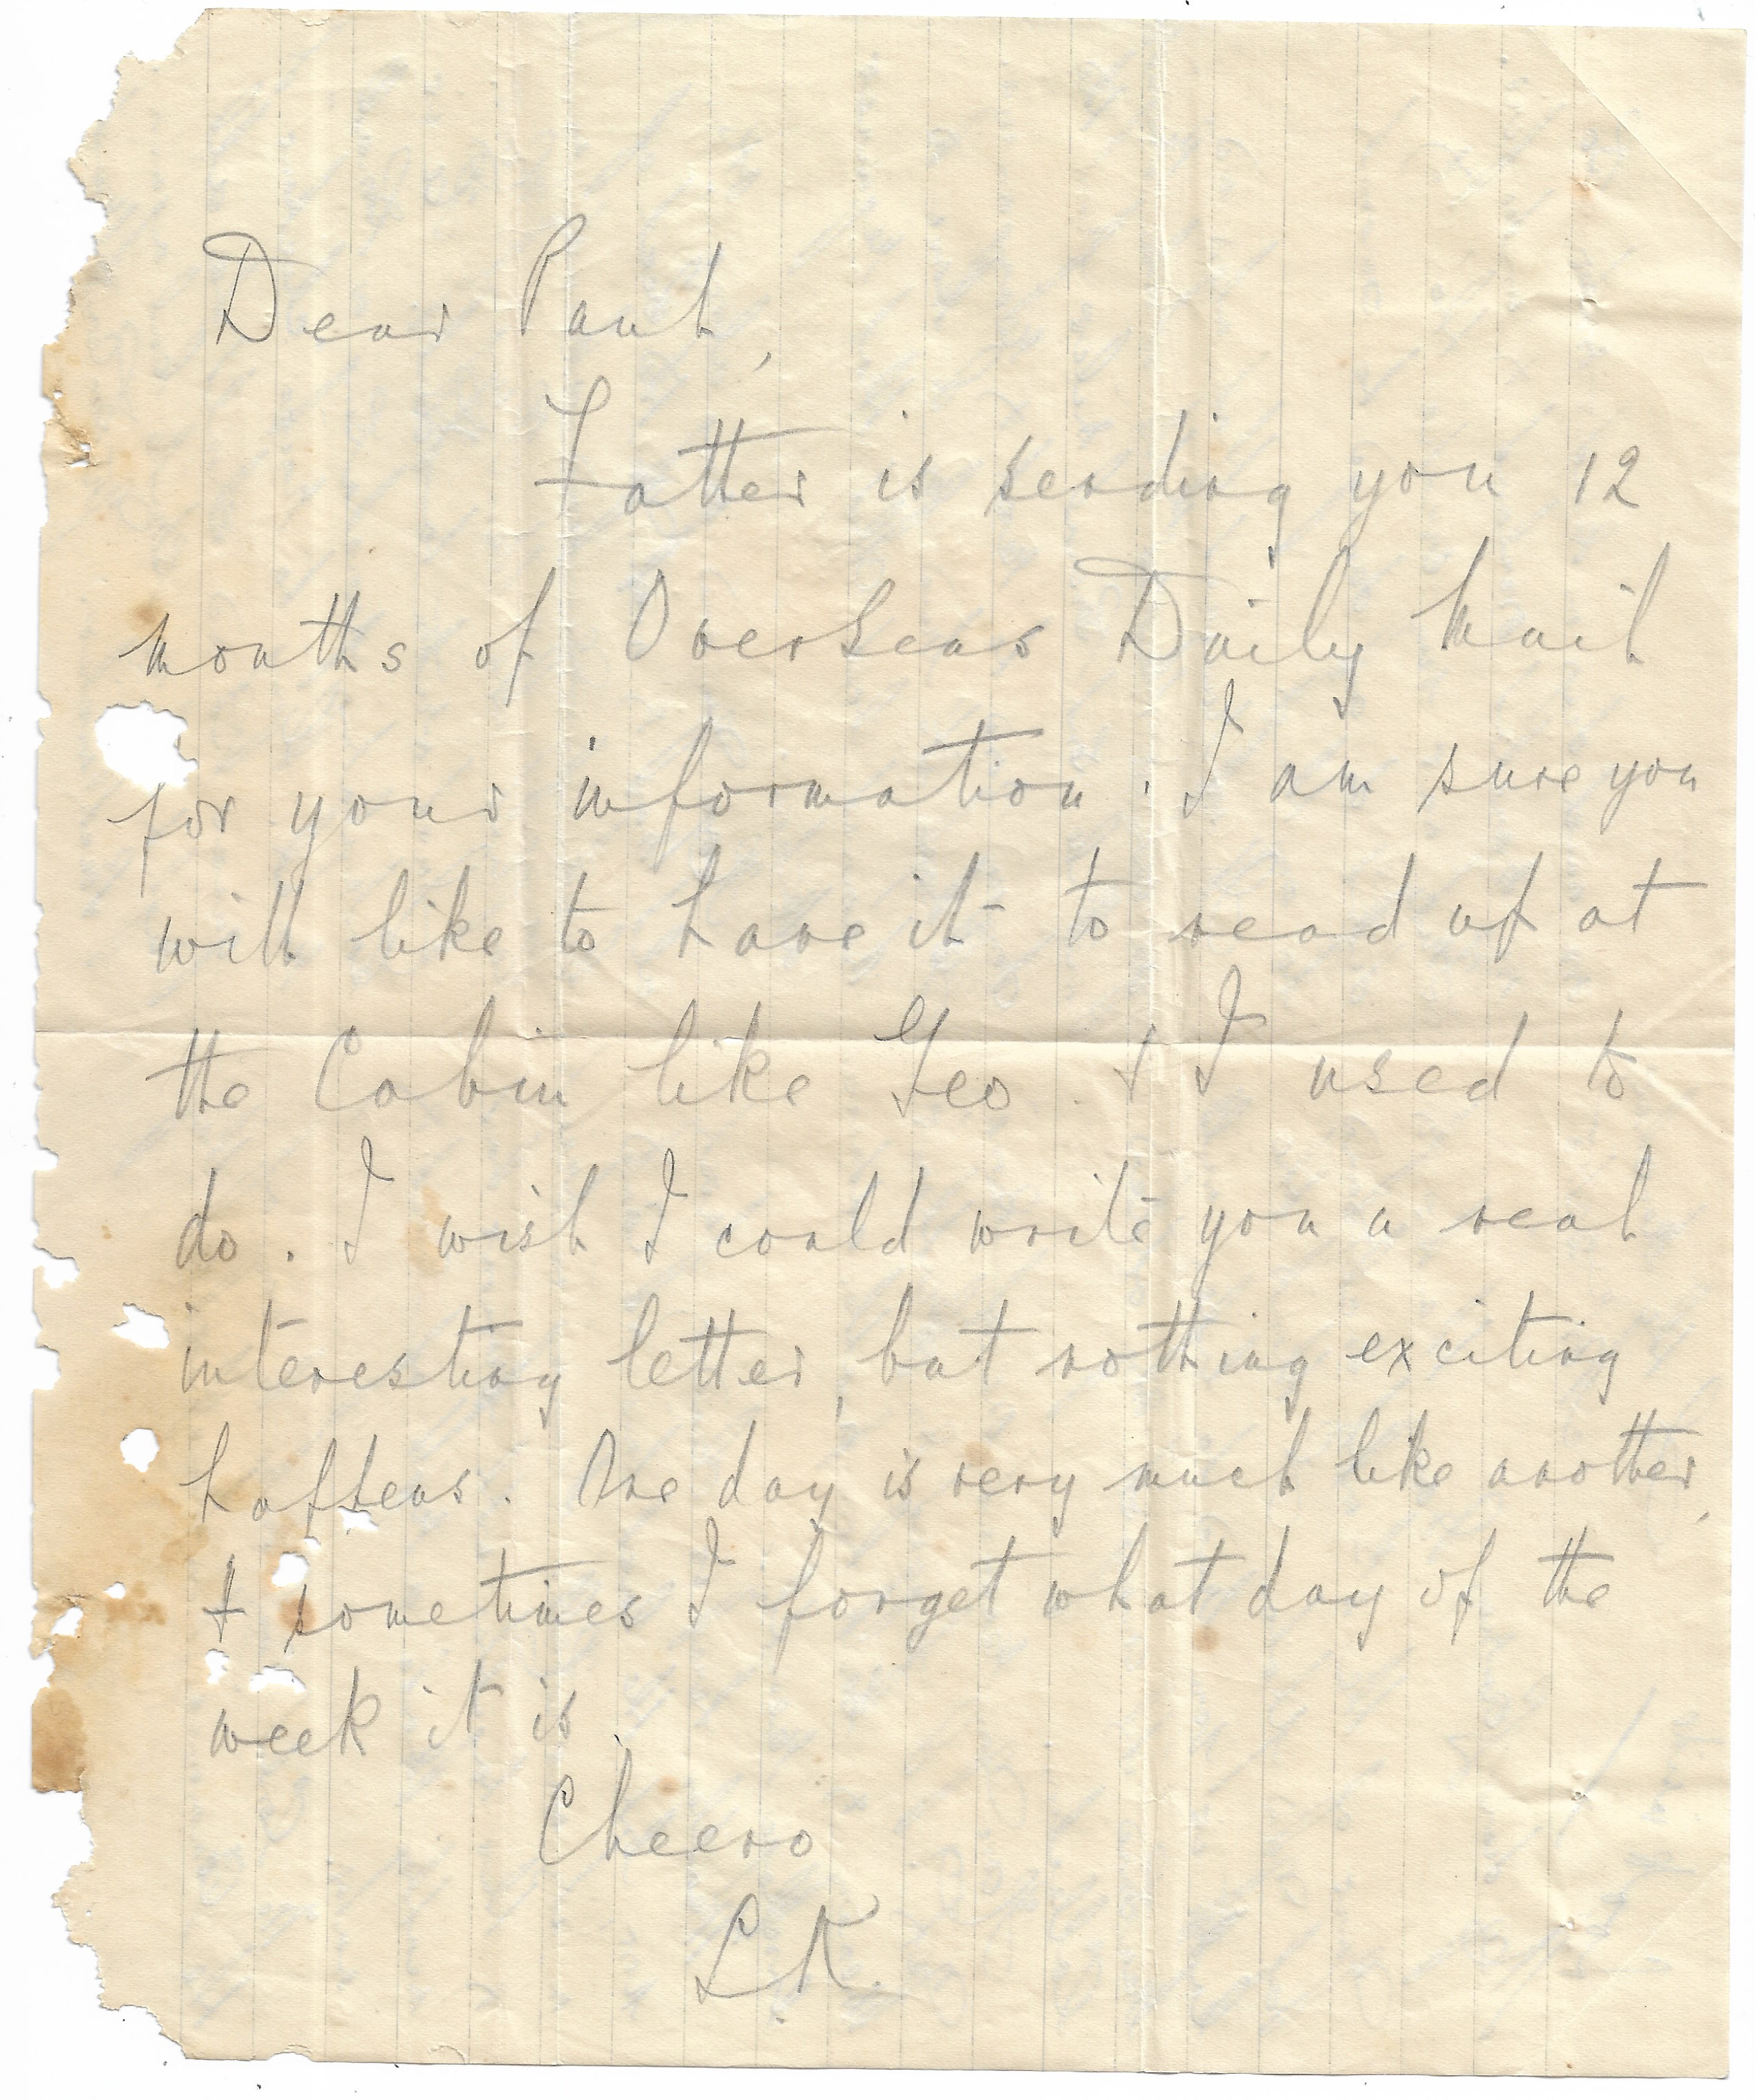 Dear Paul,
Father is sending you 12
months of Overseas Daily Mail
for your information. I am sure you
will like to have it to read up at
the Cabin like Geo. & I used to
do. I wish I could write you a real
interesting letter, but nothing exciting
happens. One day is very much like another,
& sometimes I forget what day of the
week it is.
Cheero
L.K.